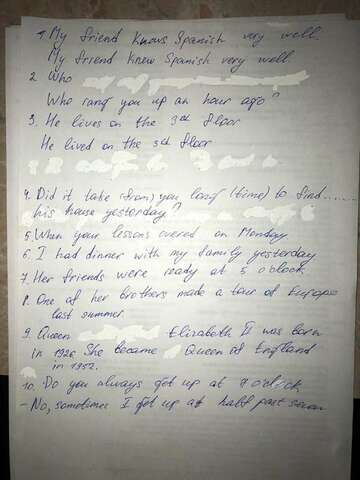 1. My friend knows Spanish very well.
My friend knew Spanish very well.
2. Who
Who rang you up an hour ago?
3. He lives on the 3rd floor
He lived on the 3rd floor
4. Did it take (from) you long (time) to find........
his house yesterday?
5. When your lessons overed on Monday
6. I had dinner with my family yesterday
7. Her friends were ready at 5 o'clock
8. One of her brothers made a tour of Europe
last summer.
9. Queen Elizabeth II was born
in 1926 She became Queen of England
in 1952.
10. Do you always get up at 7 o'clock
- No, sometimes I get up at half past seven